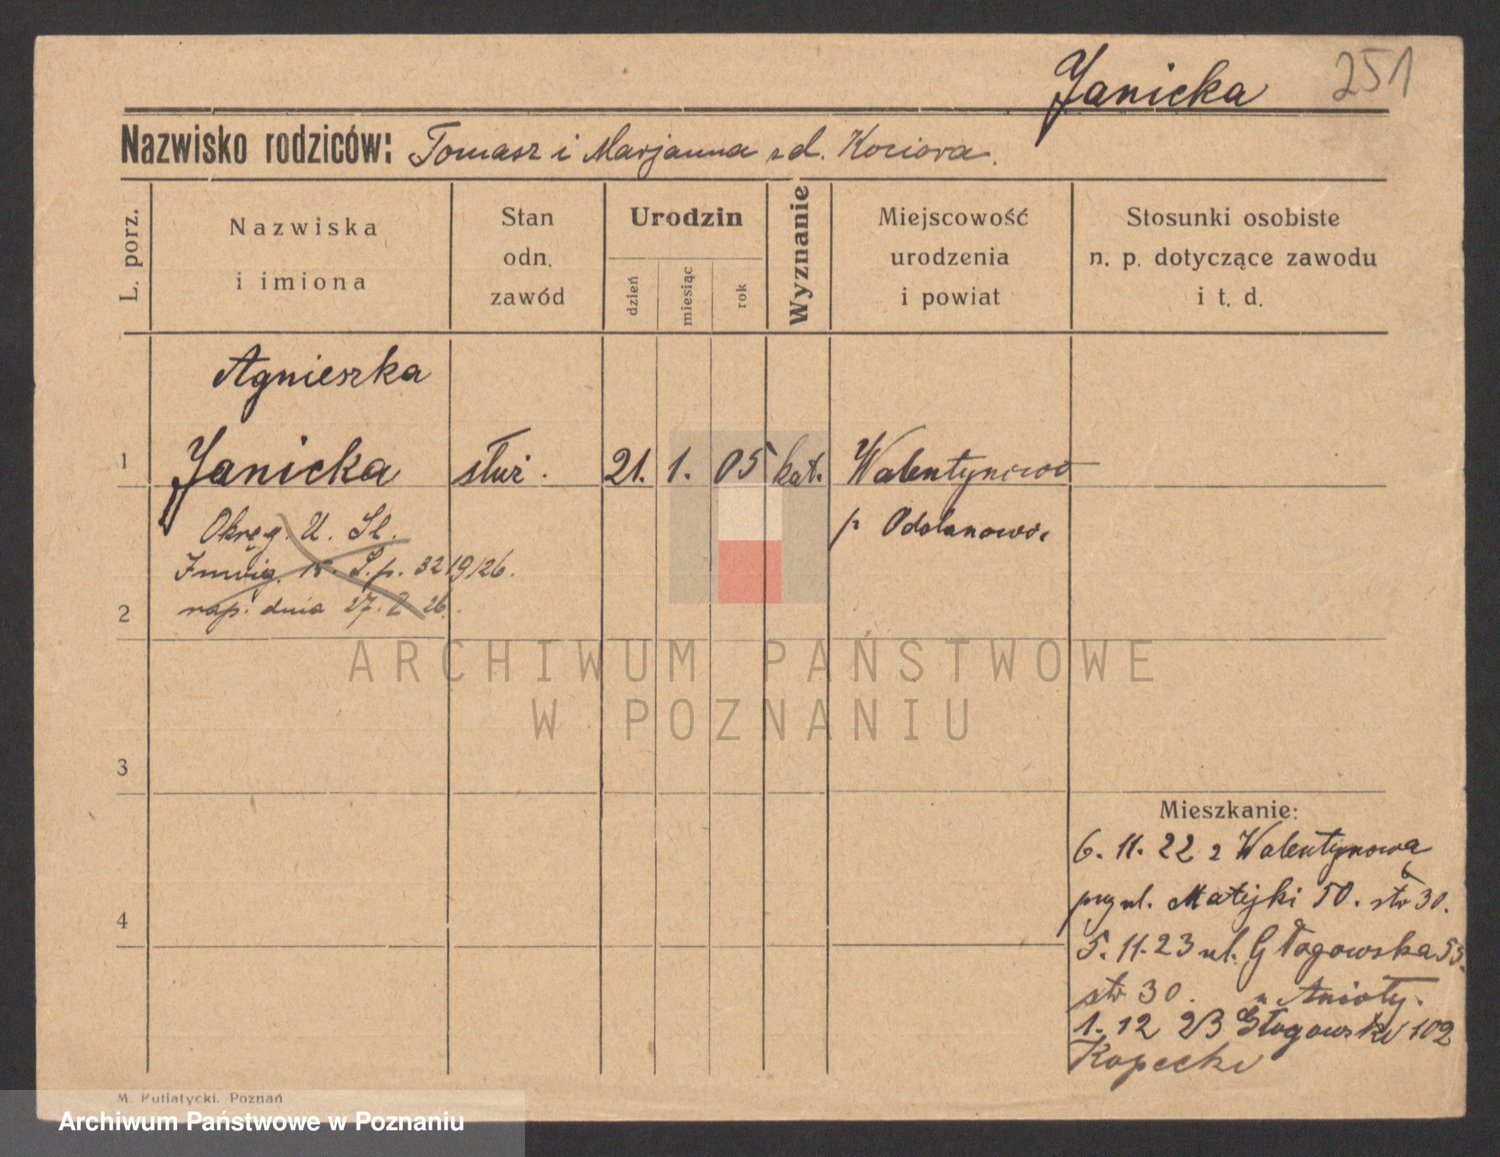 Janicka 251
Nazwisko rodziców: Tomasz i Marjanna zd. Kociora.
L. porz.
Nazwiska
i imiona
Stan
odn.
zawód
Urodzin
dzień
miesiąc
rok
Wyznanie
Miejscowość
urodzenia
i powiat
Stosunki osobiste
n. p. dotyczące zawodu
i t. d.
Agnieszka
1 Janicka służ. 21. 1. 05 kat. Walentynowo
Okręg. U. Śl. p. Odolanowo.
L.p. 3219/26.
2 nap. dnia 27. 26.
ARCHIWUM PAŃSTWOWE
W POZNANIU
3
Mieszkanie:
6. 11. 22 z Walentynowa
przy ul. Matejki 50. str 30.
4
5. 11. 23 ul. Głogowska 53.
str 30. u Anioły.
1. 12 23 Głogowska 102
Kopecki
M. Putiatycki, Poznań
Archiwum Państwowe w Poznaniu